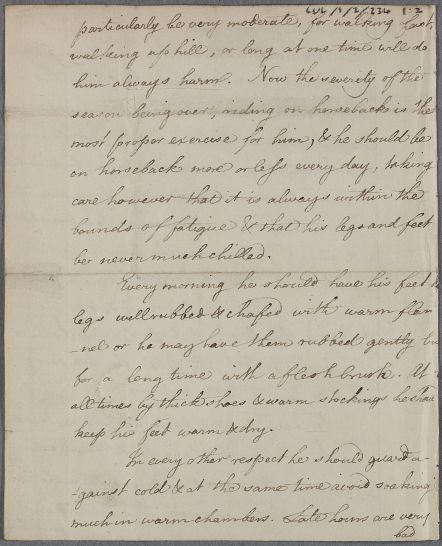 CUL/1/2/236 1:2
particularly be very moderate, for walking fast,
walking up hill, or long at one time will do
him always harm. Now the severity of the
season being over, riding on horseback is the
most propor exercise for him, & he should be
on horseback more or less every day, taking
care however that it is always within the
bounds of fatigue & that his legs and feet
be never much chilled.
Every morning he should have his feet &
legs well rubbed & chafed with warm flan
-nel or he may have them rubbed gently bu
for a long time with a flesh brush. At
all times by thick shoes & warm stockings he shou
keep his feet warm & dry.
In every other respect he should guard a-
-gainst cold & at the same time avoid soaking
much in warm chambers. Late hours are very
bad